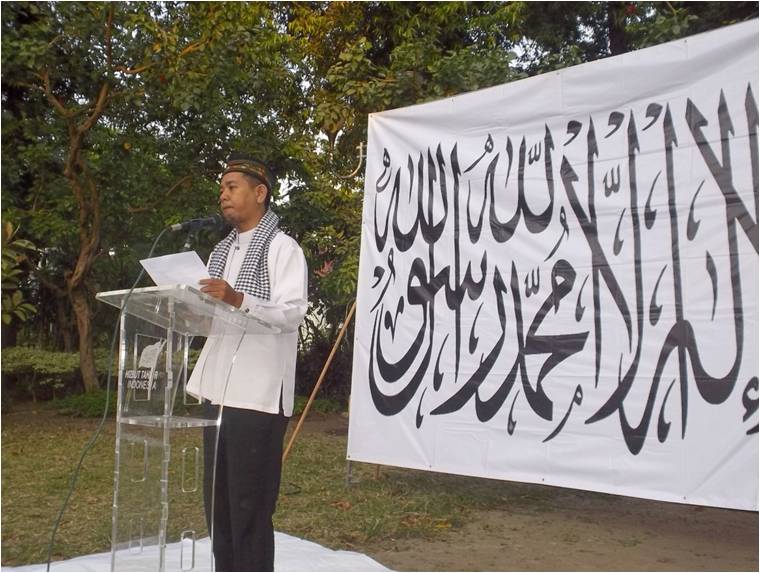 HIZBUT TAHRIR
INDONESIA
لا إله إلا الله محمد رسول الله